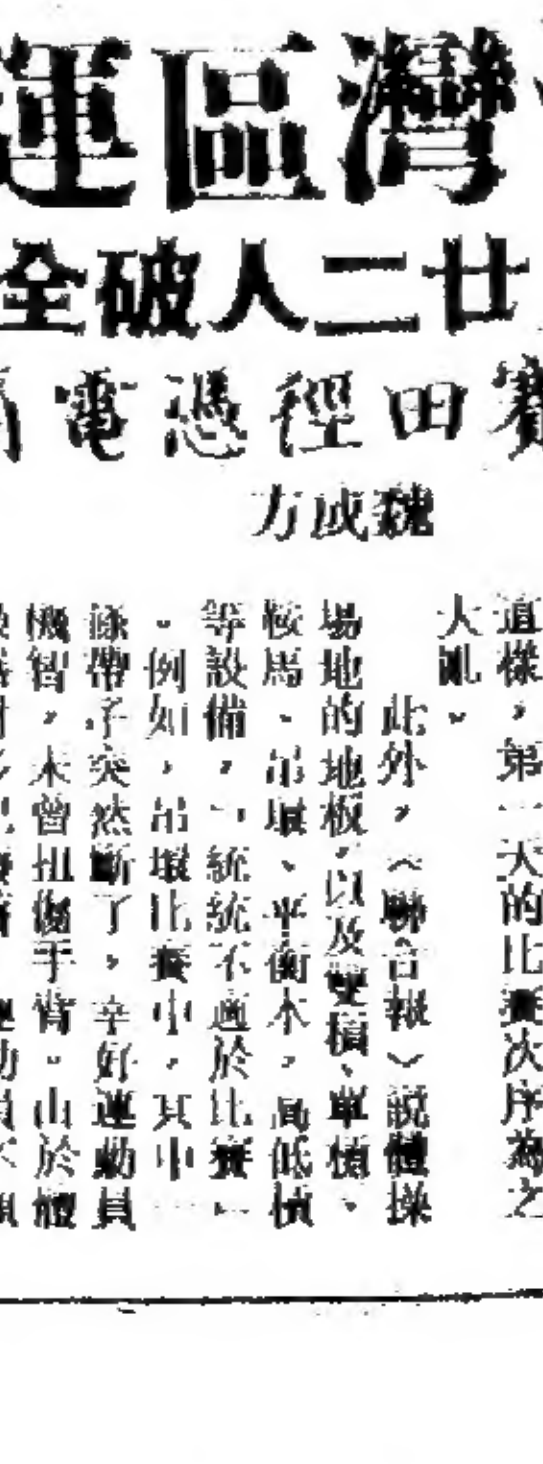 灣區運
廿二人破全
賽田徑憑電
魏成方
這樣，第一天的比賽次序為之
大亂。
此外，〈聯合報〉說體操
場地的地板，以及雙槓、單槓、
鞍馬、吊環、平衡木、高低槓
等設備，「統統不適於比賽」
。例如，吊環比賽中，其中
條帶子突然斷了，幸好運動員
機智，未曾扭傷手臂。由於體